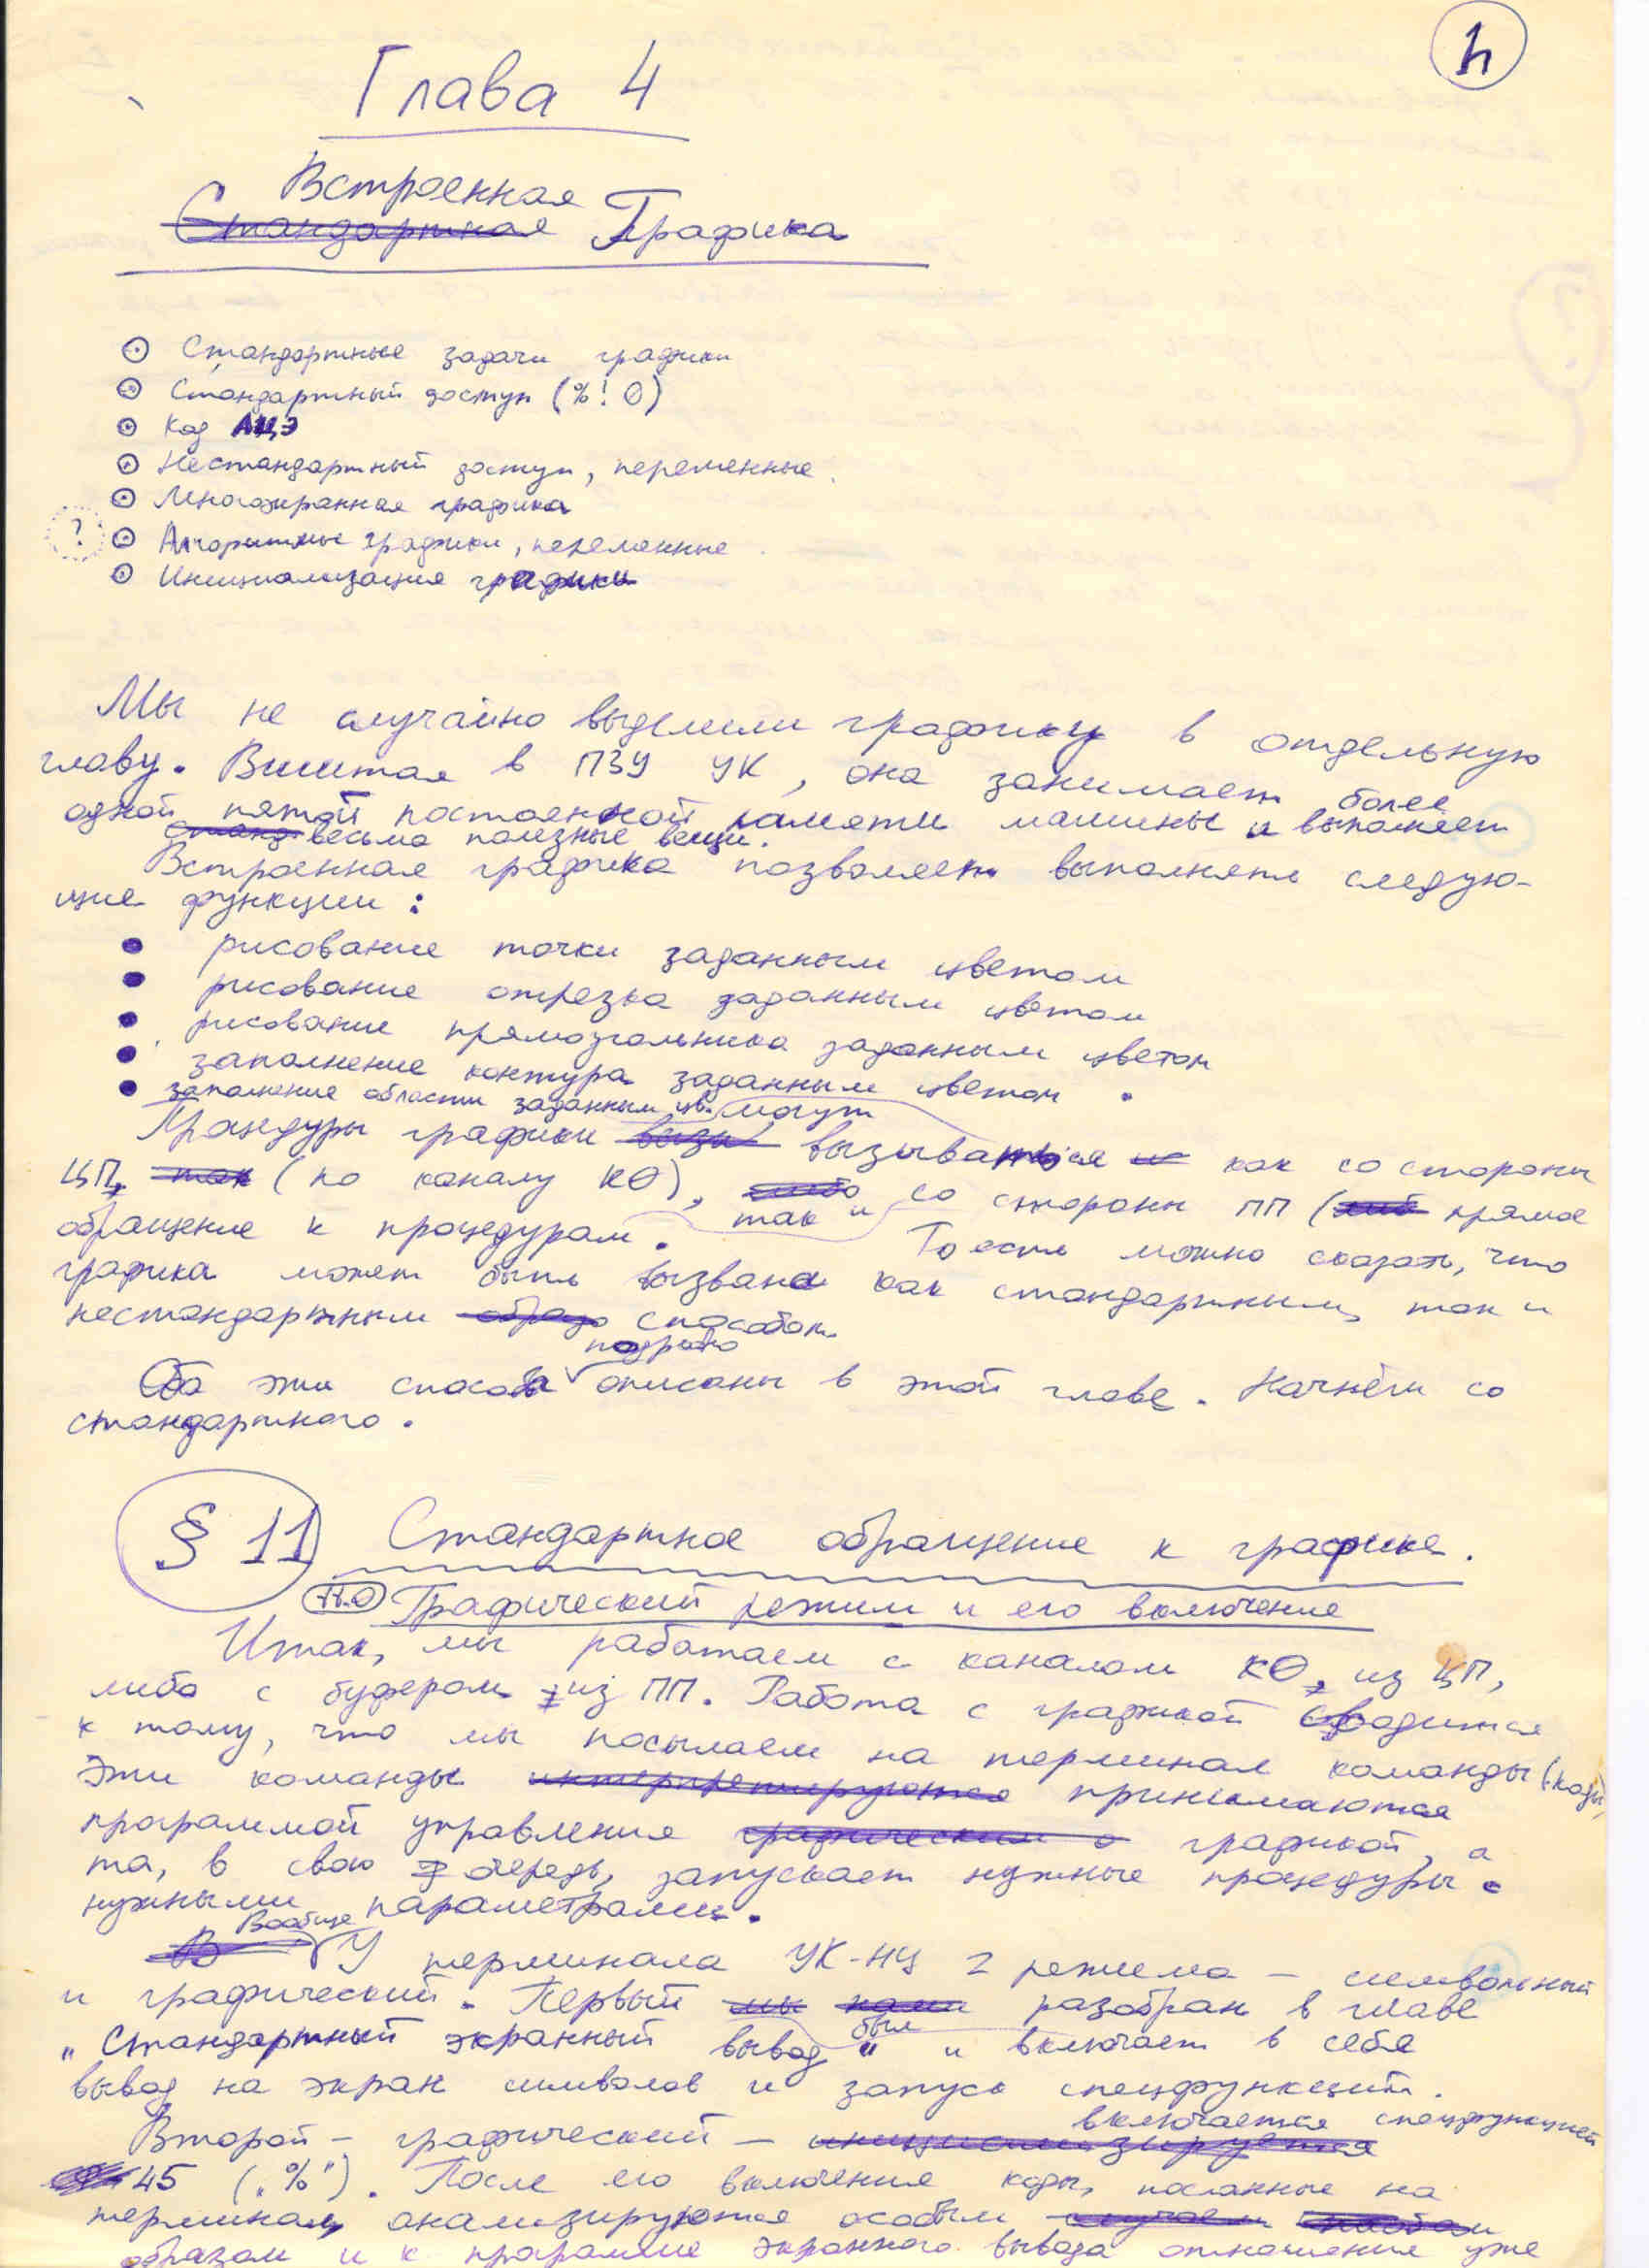 4
Глава 4
Встроенная
Стандартная Графика
⊙ Стандартные задачи графики
⊙ Стандартный доступ (%! 0)
⊙ Код АЦЭ
⊙ Нестандартный доступ, переменные.
⊙ Многоэкранная графика
? ⊙ Алгоритмы графики, переменные
⊙ Инициализация графики
Мы не случайно выделили графику в отдельную
главу. Вшитая в ПЗУ УК, она занимает более
одной пятой постоянной памяти машины и выполняет
станд весьма полезные вещи.
Встроенная графика позволяет выполнять следую-
щие функции:
• рисование точки заданным цветом
• рисование отрезка заданным цветом
• рисование прямоугольника заданным цветом
• заполнение контура заданным цветом.
• заполнение области заданным цв.
Процедуры графики могут вызываться как со стороны
ЦП, так (по каналу К0), либо так и со стороны ПП (прямое
обращение к процедурам. То есть можно сказать, что
графика может быть вызвана как стандартным, так и
нестандартным образо способом.
подробно
Оба эти способа описаны в этой главе. Начнём со
стандартного.
§ 11 Стандартное обращение к графике.
11.0 Графический режим и его включение
Итак, мы работаем с каналом К0, из ЦП,
либо с буфером из ПП. Работа с графикой сводится
к тому, что мы посылаем на терминал команды (коды)
Эти команды интерпретируются принимаются
программой управления графической графикой, а
та, в свою очередь, запускает нужные процедуры с
нужными параметрами.
В Вообще У терминала УК-НЦ 2 режима – символьный
и графический. Первый мы нами разобран в главе
был
„Стандартный экранный вывод" и включает в себя
вывод на экран символов и запуск спецфункций.
включается спецфункцией
Второй – графический – инициализируется
45 („%"). После его включения коды, посланные на
терминал, анализируются особым случаем
образом и к программе экранного вывода отношения уже